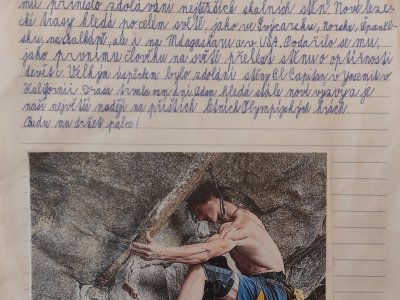 mu přineslo zdolávání nejtěžších skalních stěn. Nové leze-
cké trasy hledá po celém světě, jako ve Švýcarsku, Norsku, Španěl-
sku, na Balkáně, ale i na Madagaskaru a v USA. Podařilo se mu,
jako prvnímu člověku na světě přelézt stěnu o obtížnosti
devět c. Velkým úspěchem bylo zdolání stěny El Capitan v Yosemit v
Kalifornii. Trasa trvala osm dní. Adam hledá stále nové výzvy a je
naší největší nadějí na příštích letních Olympijských hrách.
Budu mu držet palce!